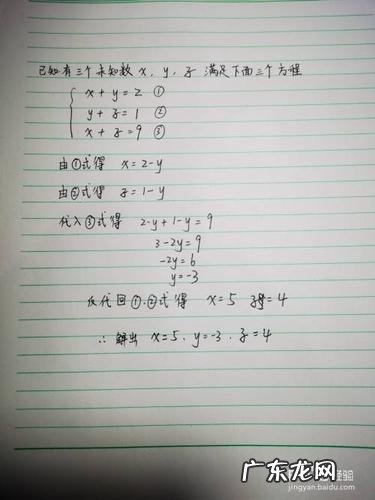 已知有三个未知数 x, y, z 满足下面三个方程
x + y = 2 ①
y + z = 1 ②
x + z = 9 ③
由①式得 x = 2-y
由②式得 z = 1-y
代入③式得 2-y+1-y=9
3-2y=9
-2y=6
y=-3
反代回①、②式得 x=5 z=4
∴ 解出 x=5、y=-3、z=4
经验
jingyan.baidu.com
广东龙网